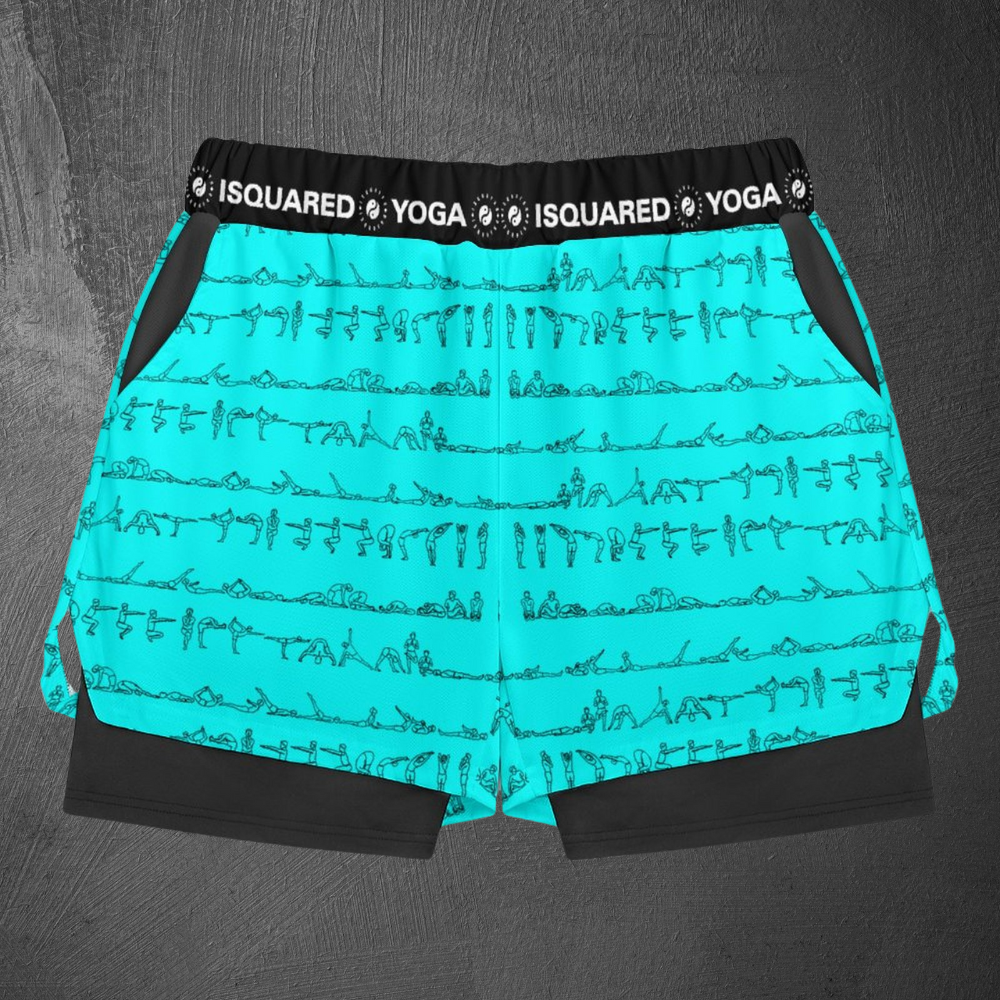 ISQUARED YOGA ISQUARED YOGA